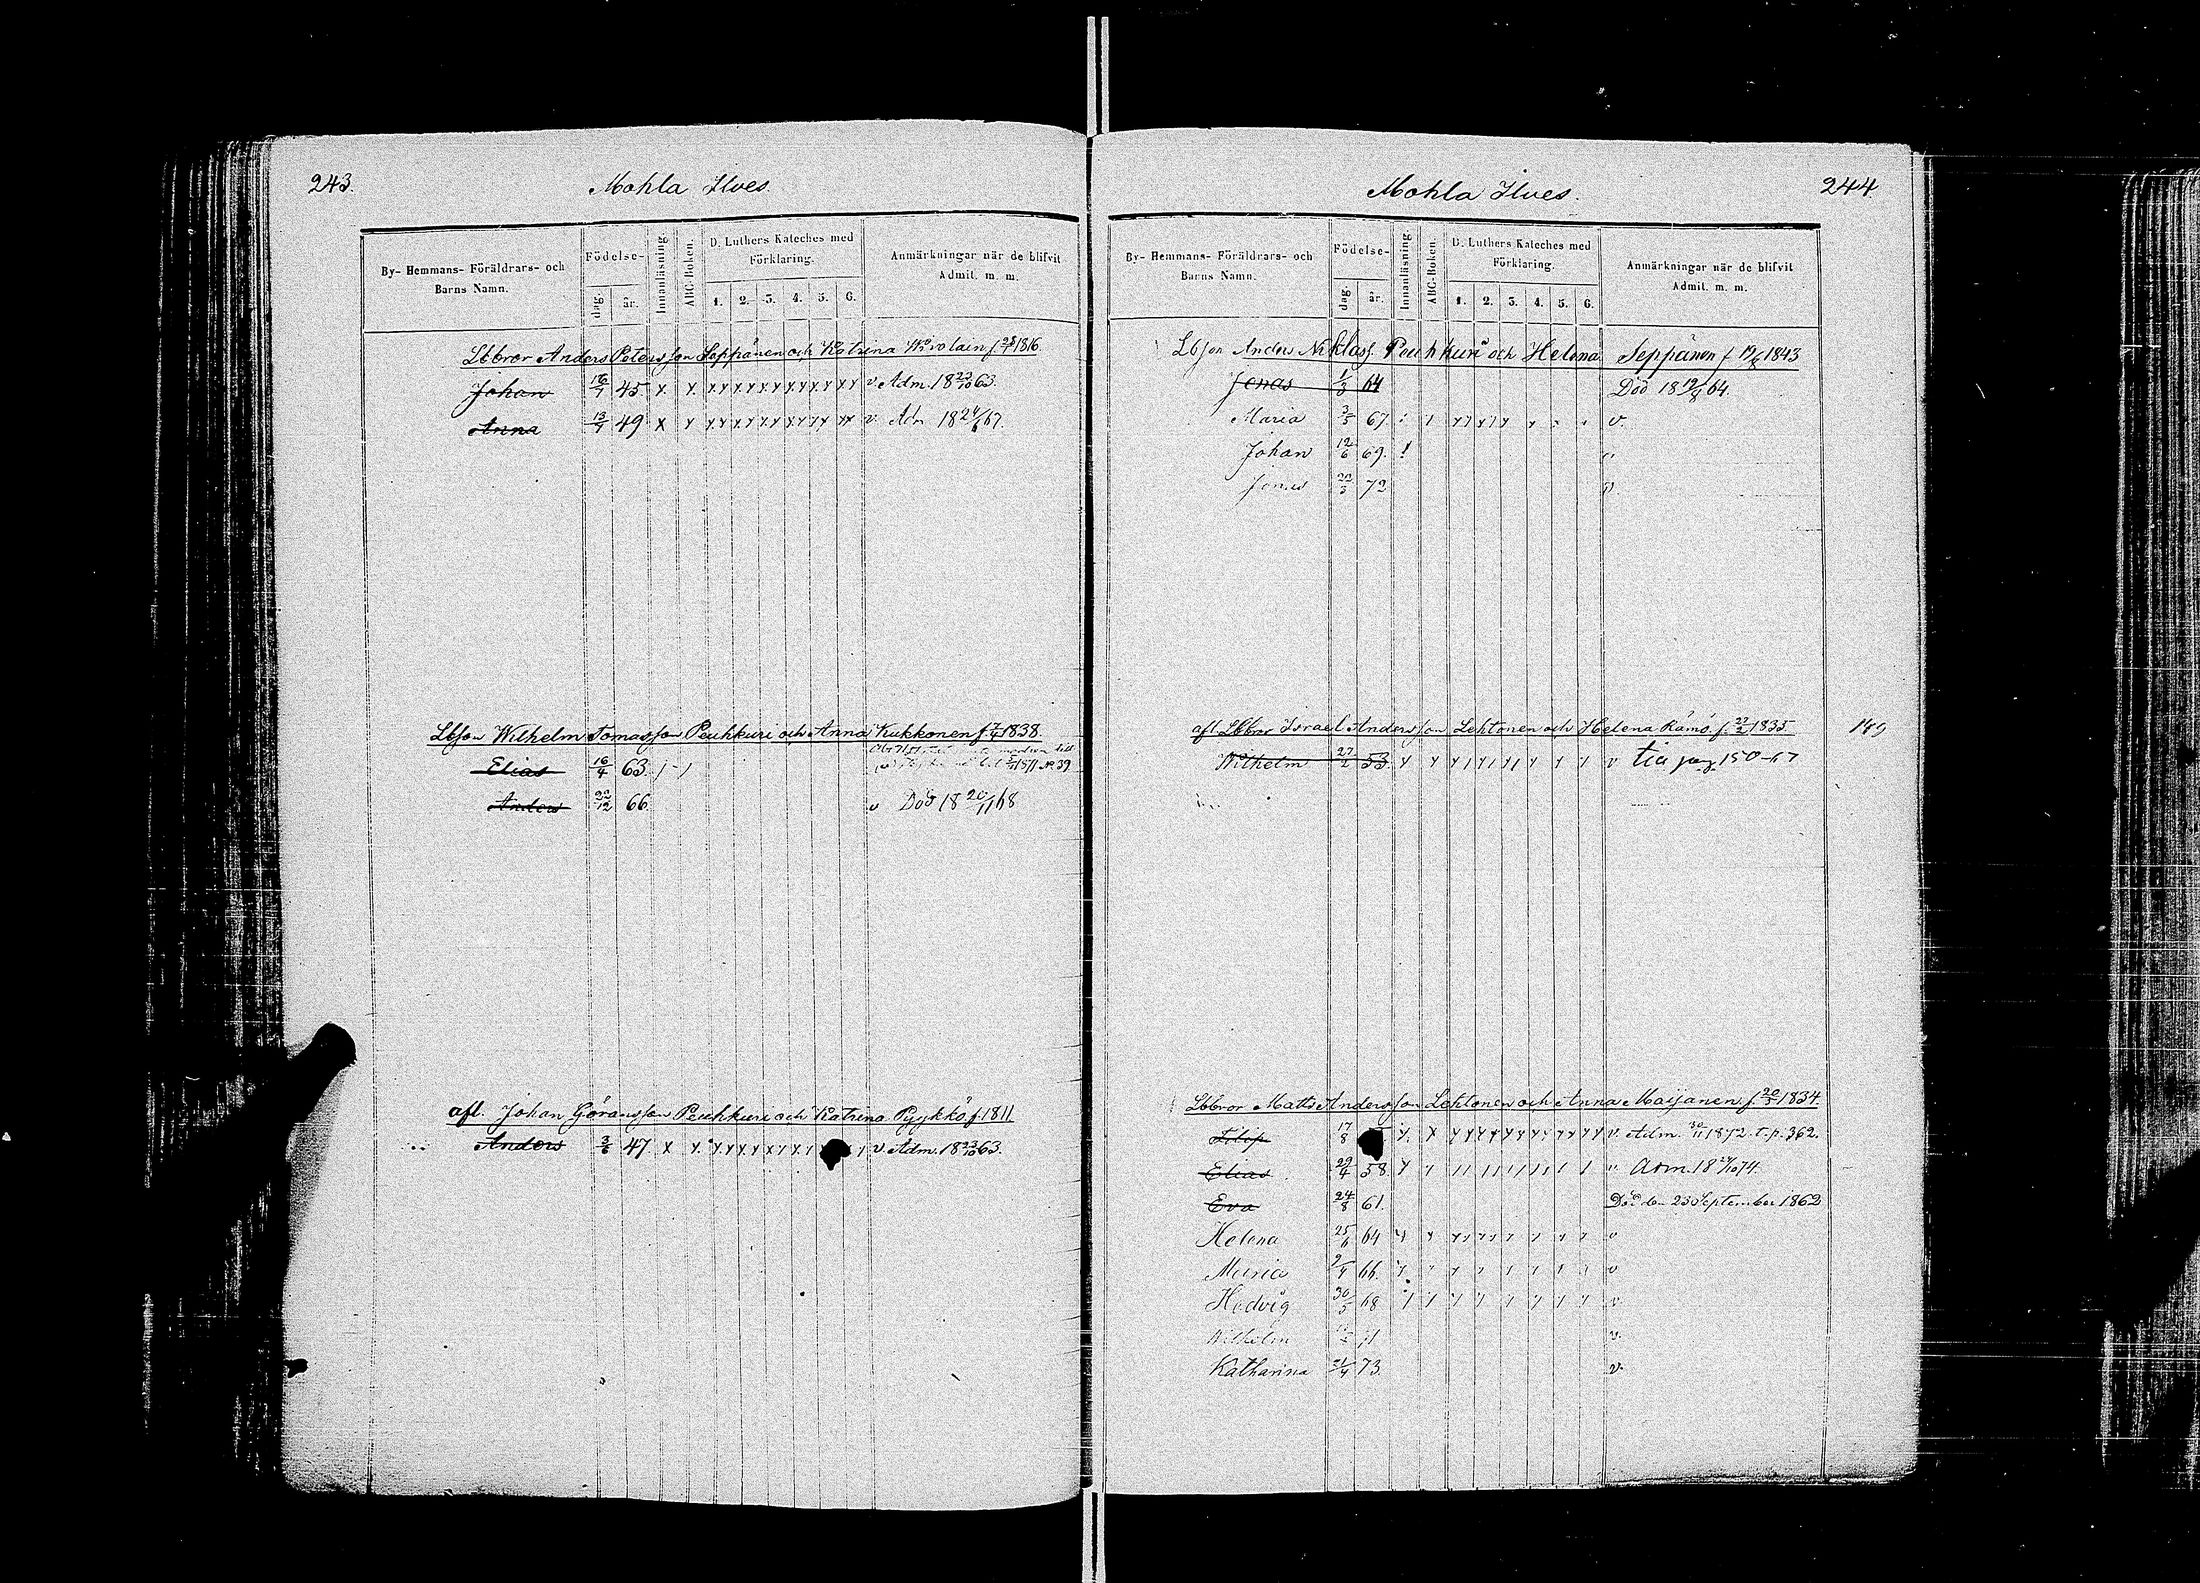 243.
Mohla Ilves.
By- Hemmans- Föräldrars- och
Barns Namn.
Födelse-
dag.
år.
Innanläsning
ABC-Boken.
D. Luthers Kateches med
Förklaring.
1. 2. 3. 4. 5. 6.
Anmärkningar när de blifvit
Admit. m. m.
Lbbror Anders Petersson Seppänen och Katrina f. 1816
Johan 16/7 45. x. x. v. Adm. 18 23/10 63.
Anna 13/7 49 x x v. Adm 18 24/6 67.
Lbson Wilhelm Tomasson Peuhkuri och Anna Kukkonen f. 7/4 1838.
Elias 16/4 63. 1871 No. 39
Anders 22/12 66. v Död 18 20/11 68
afl. Johan Göransson Peuhkuri och Katrina Pyykkö f. 1811
Anders 3/6 47. x x. v. Adm. 18 23/10 63.
244
Mohla Ilves.
By- Hemmans- Föräldrars- och
Barns Namn.
Födelse-
dag.
år.
Innanläsning
ABC-Boken.
D. Luthers Kateches med
Förklaring.
1. 2. 3. 4. 5. 6.
Anmärkningar när de blifvit
Admit. m. m.
Lbson Anders Niklass. Peuhkuri och Helena Seppänen f 19/6 1843
Jonas 1/3 64 Död 18 19/8 64.
Maria 3/5 67. v.
Johan 12/6 69.
Jonas 22/3 72 v.
afl. Lbbror Israel Andersson Lehtonen och Helena Rämö f. 27/2 1835. 149
Wilhelm 27/2 53. v till pag 150-67
Lbbror Matts Andersson Lehtonen och Anna Maijanen f. 20/5 1834.
Filip 17/8 v. Adm. 30/11 1872. t. p. 362.
Elias 29/4 58. " Adm. 18 24/10 74.
Eva 24/8 61. Död den 23 September 1862
Helena 25/6 64 v
Maria 9/4 66. v
Hedvig 30/5 68 v
Wilhelm 71 v.
Katharina 21/4 73. v.